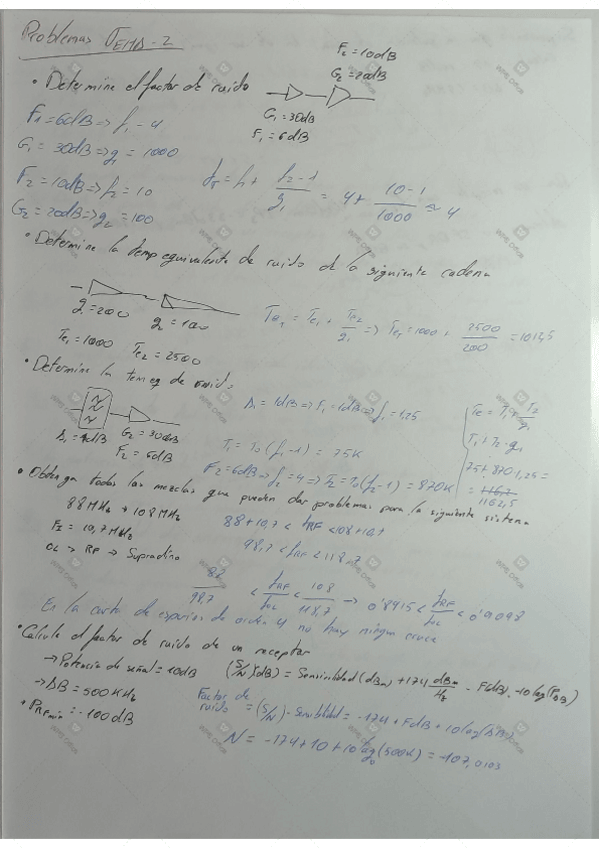 Problemas TEMA-2
F2 = 10dB
G2 = 20dB
• Determine el factor de ruido
G1 = 30dB
F1 = 6dB
F1 = 6dB => f1 = 4
G1 = 30dB => g1 = 1000
F2 = 10dB => f2 = 10
G2 = 20dB => g2 = 100
fT = f1 + (f2-1)/g1 = 4 + (10-1)/1000 ≈ 4
• Determine la temp equivalente de ruido de la siguiente cadena
g1 = 200
g2 = 100
Te1 = 1000
Te2 = 2500
TeT = Te1 + Te2/g1 => TeT = 1000 + 2500/200 = 1012,5
• Determine la tem eq de ruido
G2 = 30dB
F2 = 6dB
A1 = 1dB => F1 = 1dB => f1 = 1,25
T1 = T0 (f1-1) = 75K
F2 = 6dB => f2 = 4 => T2 = T0 (f2-1) = 870K
Te = T1 + T2/g1
T1 + T2 · g1
75 + 870 · 1,25 =
= 1162,5
• Obtenga todas las mezclas que pueden dar problemas para la siguiente sistema
88 MHz → 108 MHz
FI = 10,7 MHz
OL → RF → Supradino
88 + 10,7 < fRF < 108 + 10,7
98,7 < fRF < 118,7
88/98,7 < fRF/fOL < 108/118,7 → 0'8915 < fRF/fOL < 0'9098
En la carta de espurios de orden 4 no hay ningun cruce
• Calcule el factor de ruido de un receptor
→ Potencia de señal = 10dB
→ AB = 500 KHz
• PRFmin = -100 dB
(S/N)(dB) = Sensibilidad (dBm) + 174 dBm/Hz - F(dB) - 10 log(
Factor de ruido = (S/N) - Sensibilidad = -174 + FdB + 10 log(AB)
N = -174 + 10 + 10 log10(500K) = -107,0103
WPS Office